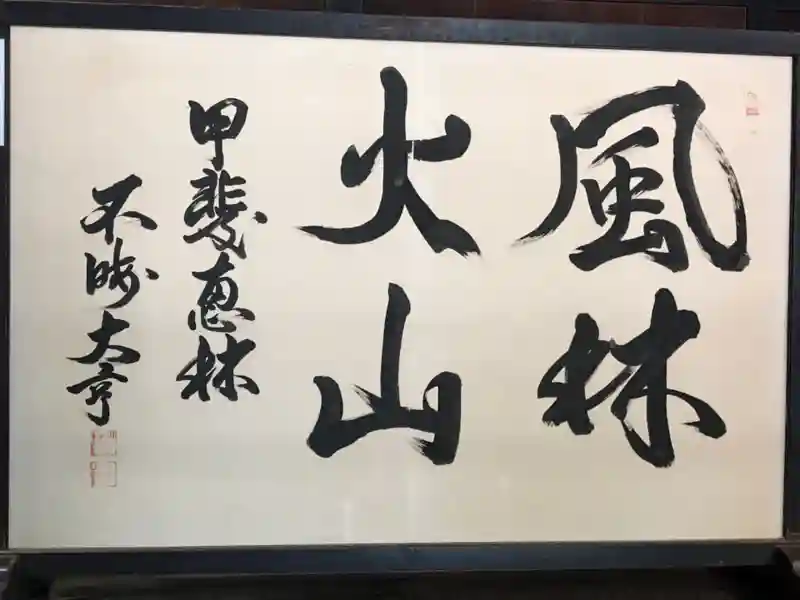 風林
火山
甲斐恵林
不晦大亨